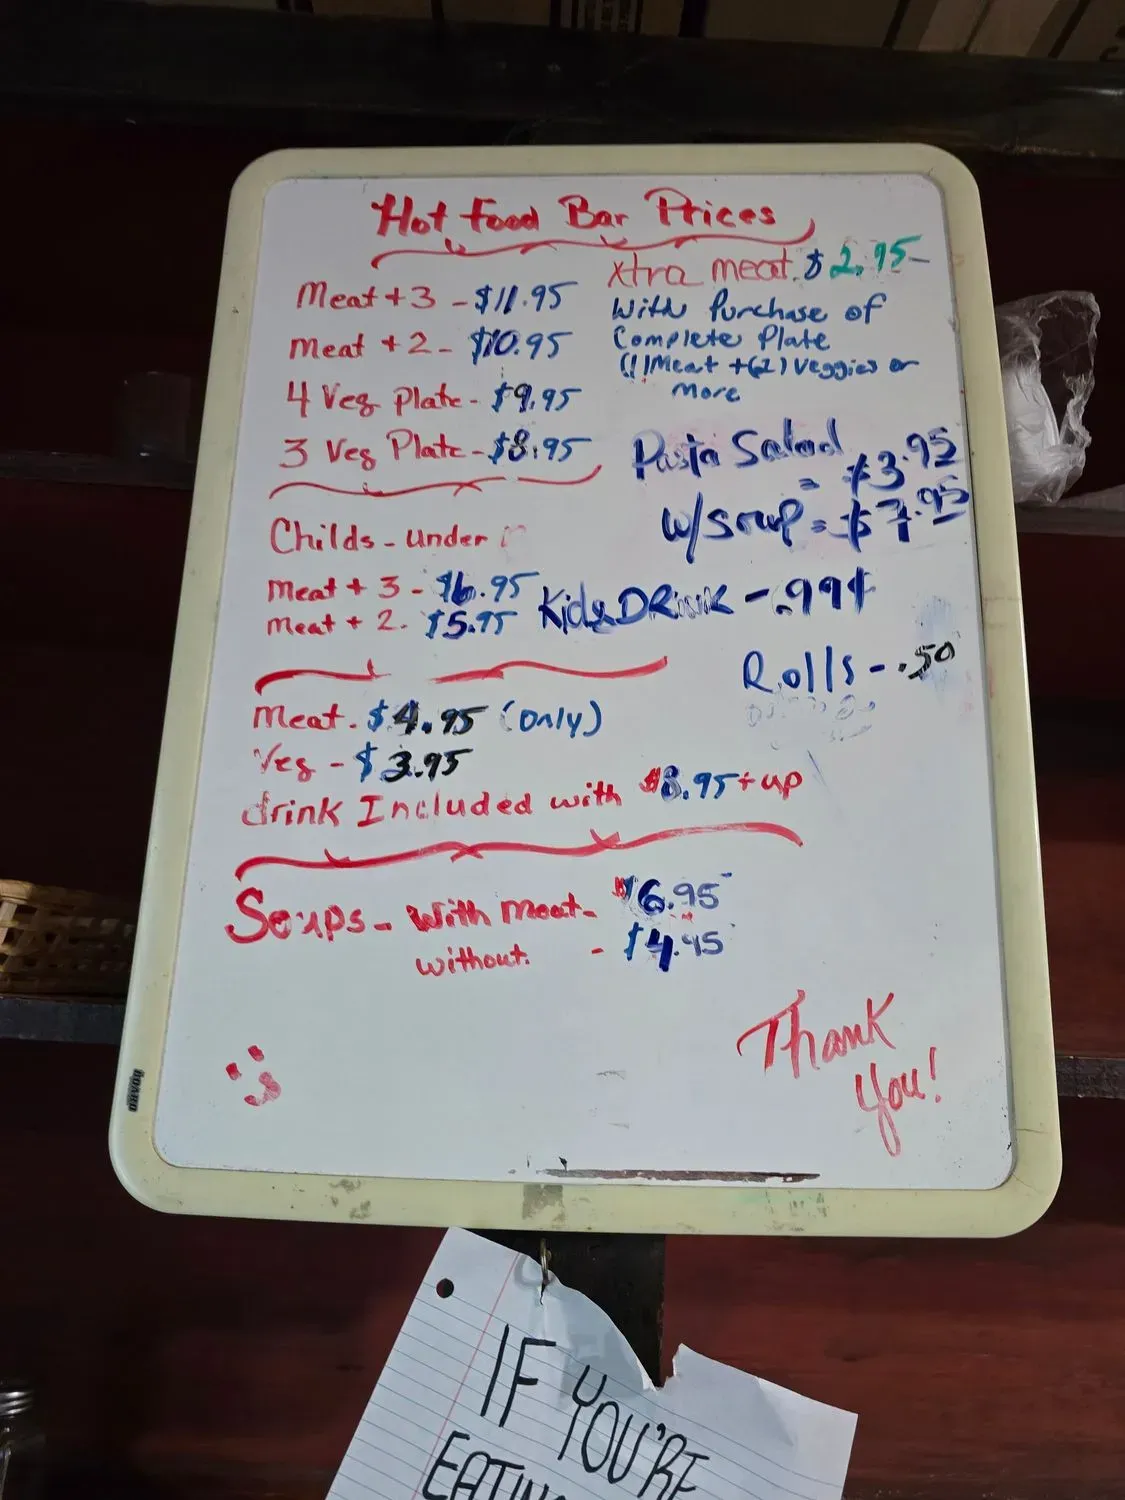 Hot Food Bar Prices
Meat + 3 - $11.95
Meat + 2 - $10.95
4 Veg Plate - $9.95
3 Veg Plate - $8.95
xtra meat $2.95-
With Purchase of
Complete Plate
(1) Meat + (2) Veggies or
More
Pasta Salad
= $3.95
w/soup = $7.95
Childs - under
Meat + 3 - $6.95
Meat + 2 - $5.95
Kids DRINK - .99¢
Rolls - .50
Meat - $4.95 (Only)
Veg - $3.95
drink Included with $8.95 + up
Soups - With Meat - $6.95
without. - $4.95
Thank
You!
BOARD
IF YOU'RE
EATING